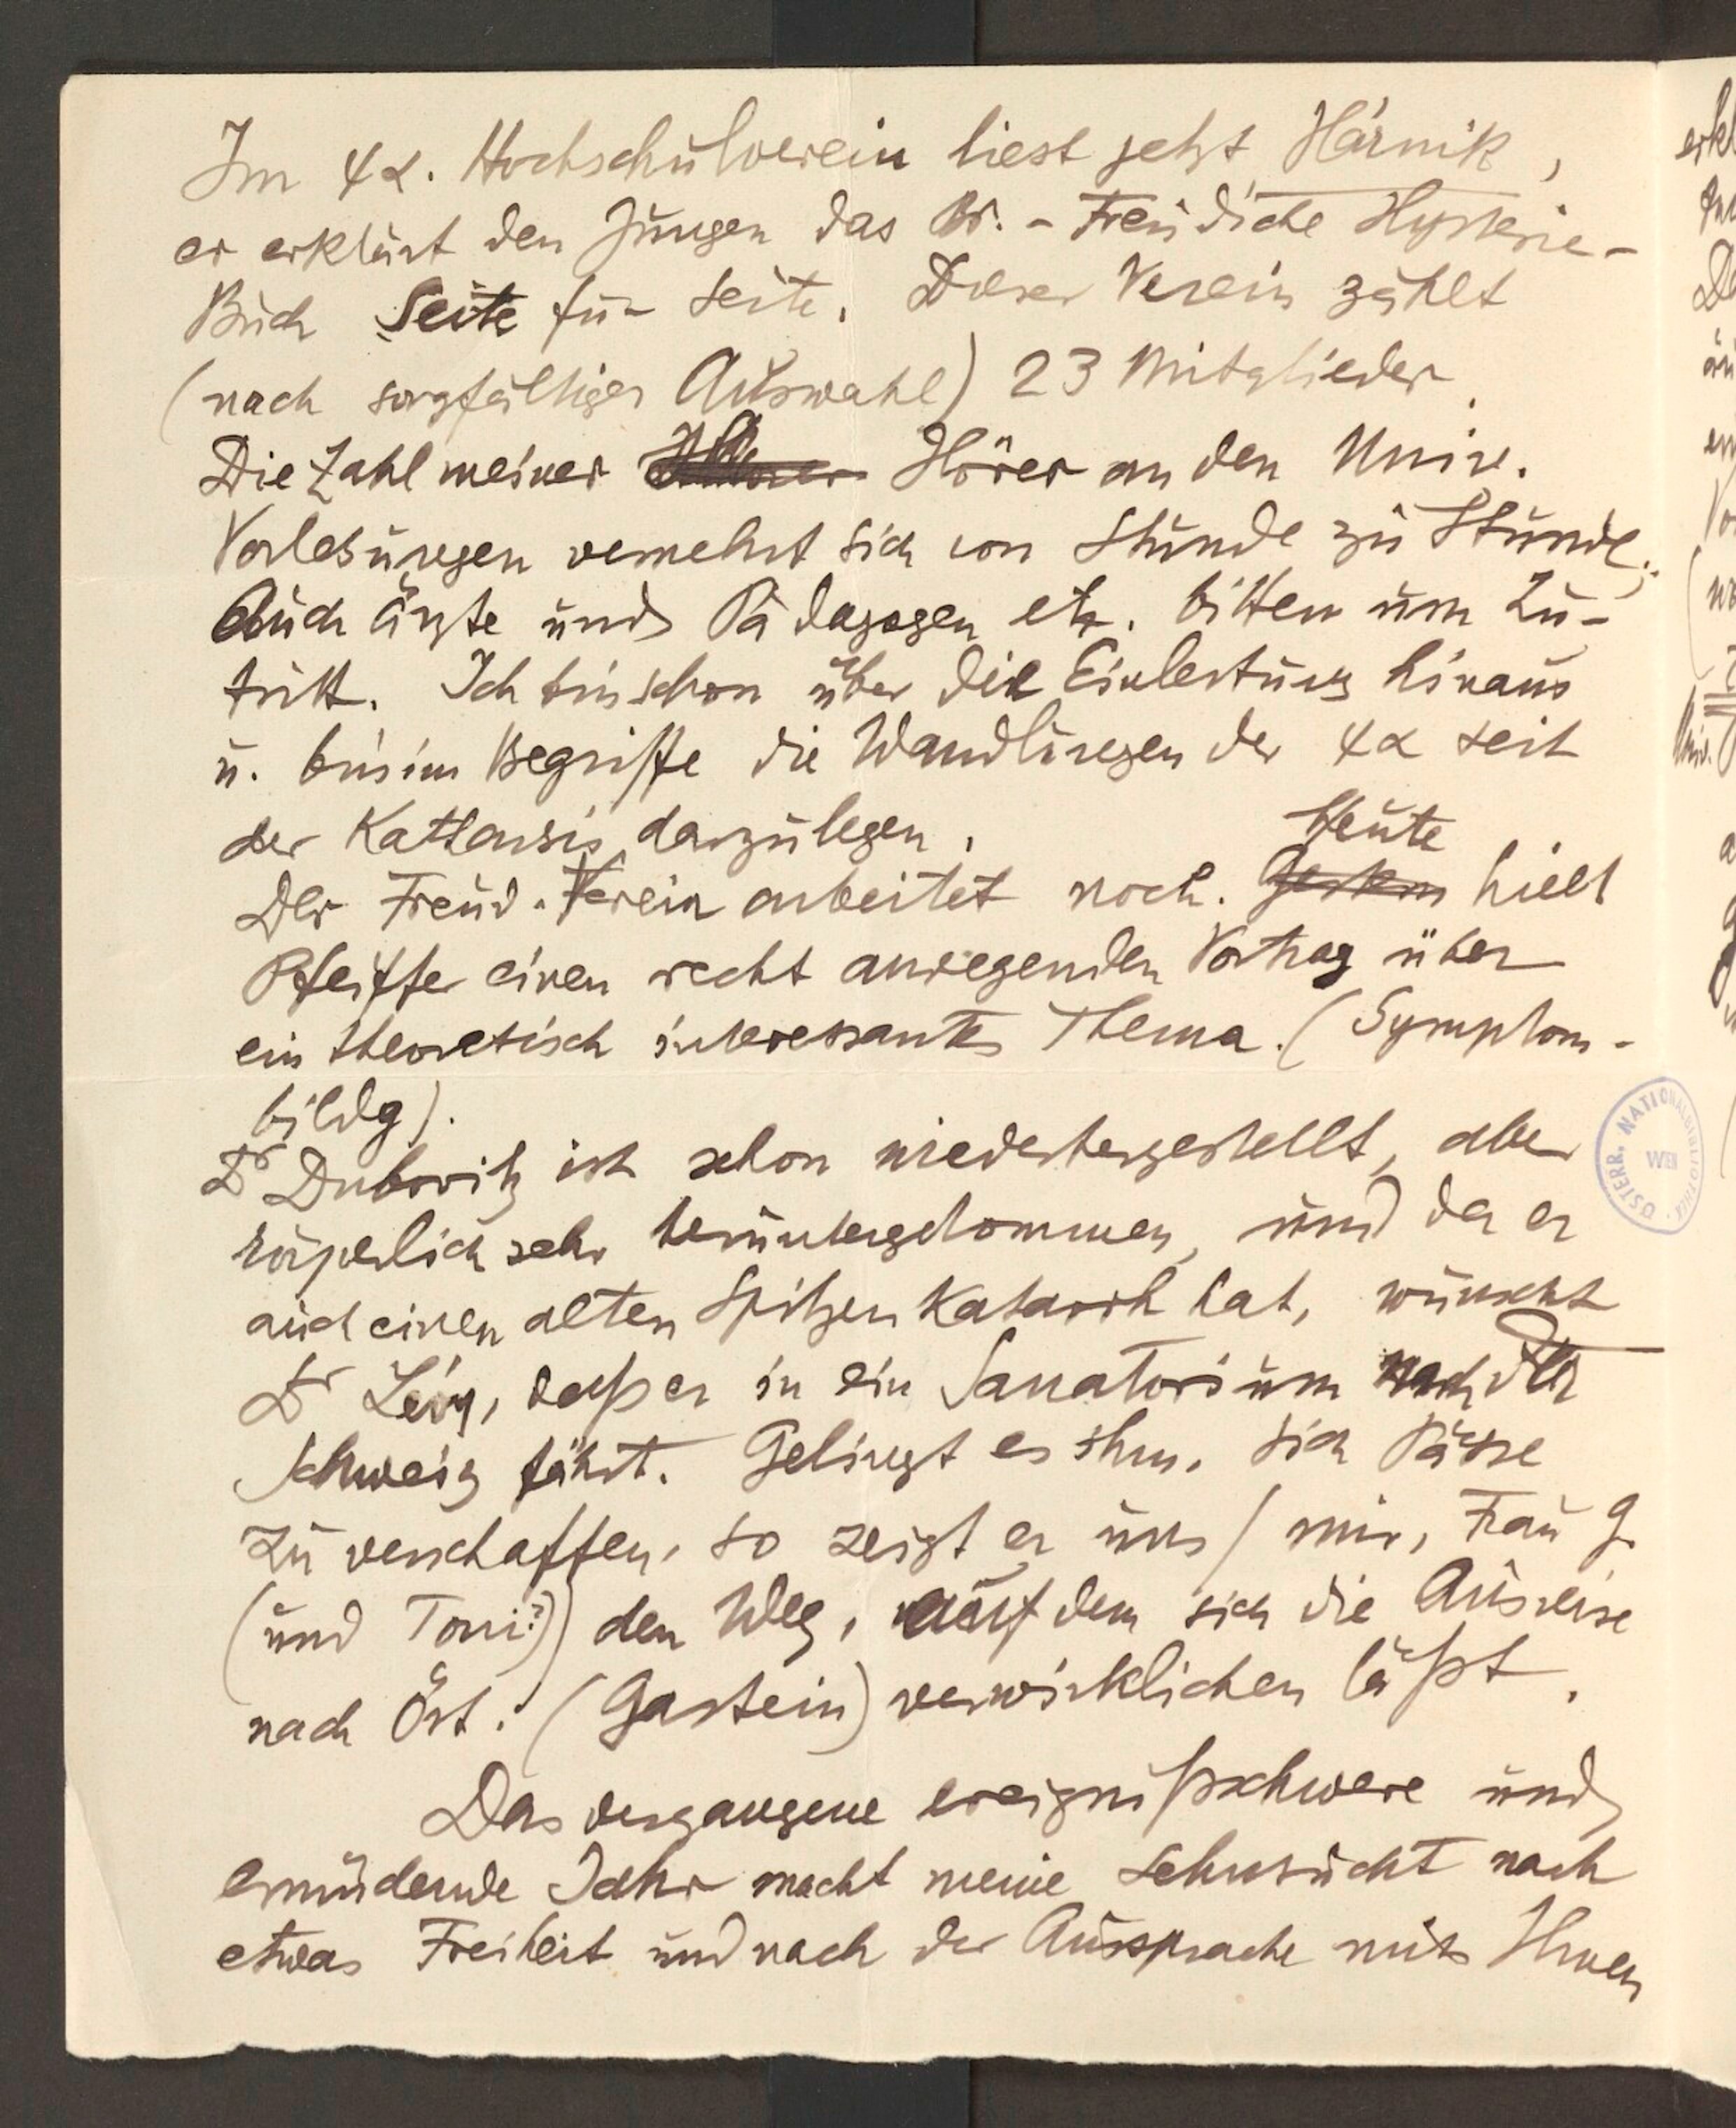 Im ψα. Hochschulverein liest jetzt Hárnik,
er erklärt den Jungen das Br.-Freudsche Hysterie-
Buch Seite für Seite. Dieser Verein zählt
(nach sorgfältiger Auswahl) 23 Mitglieder.
Die Zahl meiner Hörer an den Univ.
Vorlesungen vermehrt sich von Stunde zu Stunde;
Auch Ärzte und Pädagogen etz. bitten um Zu-
tritt. Ich bin schon über die Einleitung hinaus
u. bin im Begriffe die Wandlungen der ψα seit
der Katharsis darzulegen.
Der Freud-Verein arbeitet noch. Gestern Heute hielt
Pfeiffer einen recht anregenden Vortrag über
ein theoretisch interessantes Thema. (Symptom-
bildg).
Dr Dubovitz ist schon wiederhergestellt, aber
körperlich sehr heruntergekommen, und da er
auch einen alten Spitzenkatarrh hat, wünscht
Dr Lévy, daß er in ein Sanatorium nach der
Schweiz fährt. Gelingt es ihm, sich Pässe
zu verschaffen, so zeigt er uns (mir, Frau G.
(und Toni?)) den Weg, auf dem sich die Ausreise
nach Öst. (Gastein) verwirklichen läßt.
Das vergangene ereignißschwere und
ermüdende Jahr macht meine Sehnsucht nach
etwas Freiheit und nach der Aussprache mit Ihnen
ÖSTERR. NATIONALBIBLIOTHEK
WIEN